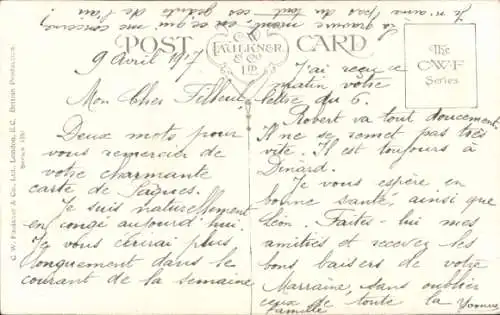 POST CARD
C.W. FAULKNER & CO LTD
The C.W.F Series.
C. W. Faulkner & Co., Ltd., London, E.C. British Production.
Series
9 Avril 1917
Mon Cher Filleul,
Deux mots pour
vous remercier de
votre charmante
carte de Pâques.
Je suis naturellement
en congé aujourd'hui.
Je vous écrirai plus
longuement dans le
courant de la semaine
J'ai reçu ce
matin votre
lettre du 6.
Robert va tout doucement.
Il ne se remet pas très
vite. Il est toujours à
Dinard.
Je vous espère en
bonne santé, ainsi que
Léon. Faites-lui mes
amitiés et recevez les
bons baisers de votre
Marraine, sans oublier
ceux de toute la
famille
Yvonne
Je n'aime pas du tout ces géants de
la guerre, et ce qui me concerne